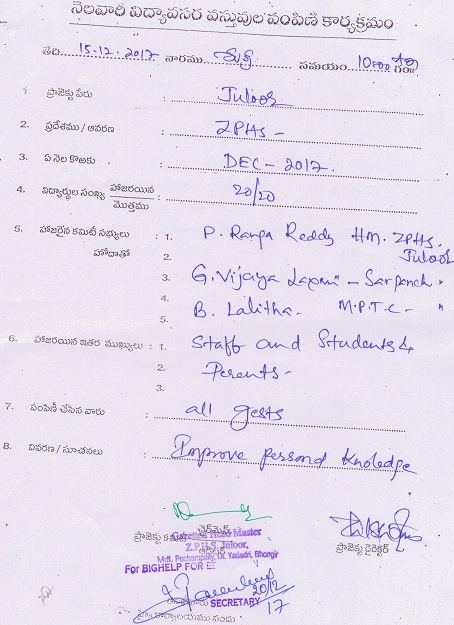 నెలవారి విద్యావసర వస్తువుల పంపిణి కార్యక్రమం
తేది. 15-12-2017 వారము శుక్ర సమయం. 10.00 గం॥
1. ప్రాజెక్టు పేరు : Juloor
2. ప్రదేశము / ఆవరణ : ZPHS -
3. ఏ నెల కొఱకు : DEC - 2017.
4. విద్యార్థుల సంఖ్య హాజరయిన / మొత్తము : 20/20
5. హాజరైన కమిటీ సభ్యులు : 1. P. Ranga Reddy HM. ZPHS.
హోదాతో 2. Juloor
3. G. Vijaya Laxmi - Sarpanch "
4.
B. Lalitha - M.P.T.C - "
5.
6. హాజరయిన ఇతర ముఖ్యులు : 1. Staff and Students &
2. Perents -
3.
7. పంపిణీ చేసిన వారు : all gests
8. వివరణ / సూచనలు : Improve personal knoledge
చైర్మైన్
ప్రాజెక్టు కమిటీ
Gazetted Head Master
ప్రాజెక్టు డైరెక్టర్
Z.P.H.S. Juloor,
Mdl. Pochampally, Dt. Yadadri, Bhongir
For BIGHELP FOR
20/12
SECRETARY
17